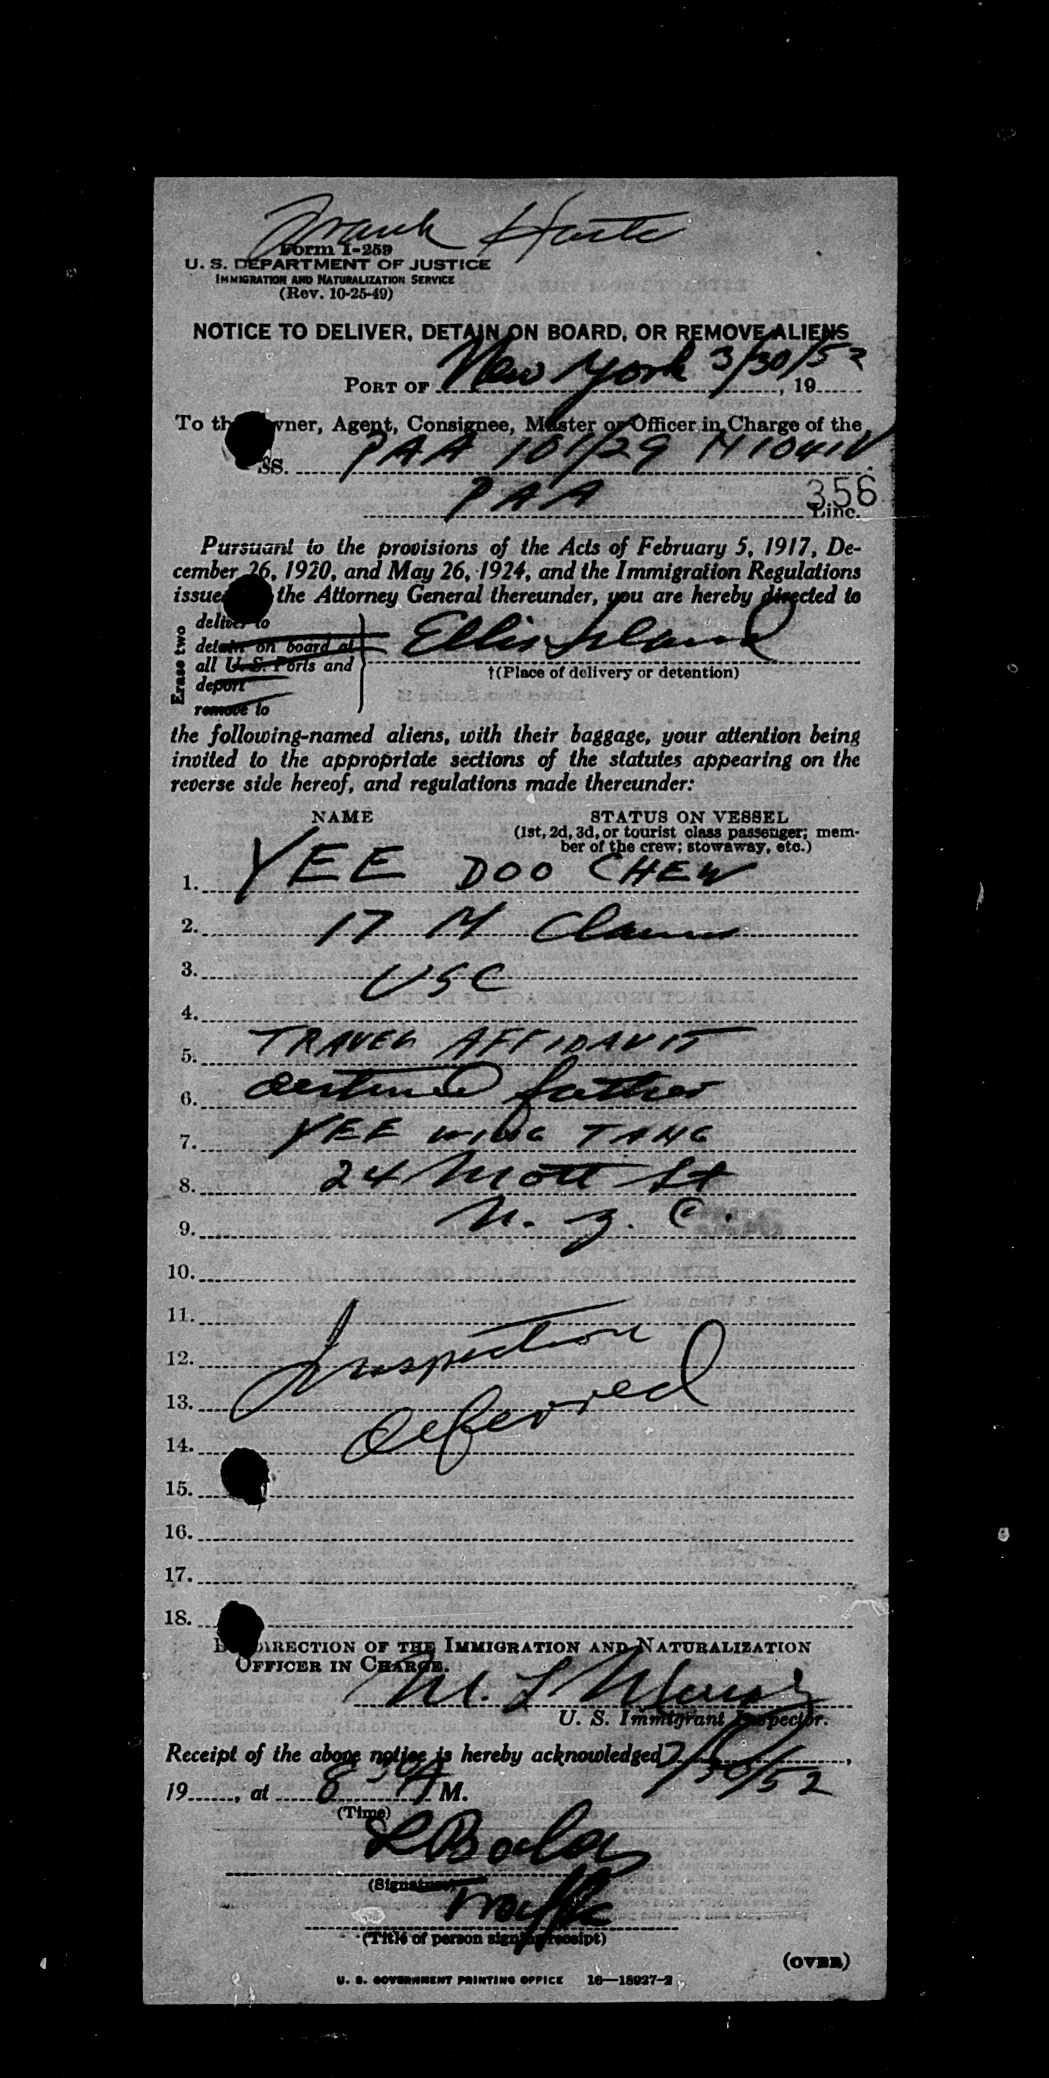 Frank Harte
Form I-259
U. S. DEPARTMENT OF JUSTICE
IMMIGRATION AND NATURALIZATION SERVICE
(Rev. 10-25-49)
NOTICE TO DELIVER, DETAIN ON BOARD, OR REMOVE ALIENS
PORT OF New York 3/30/52, 19
To th wner, Agent, Consignee, Master or Officer in Charge of the
SS. PAA 101/29 N1041V
PAA 356 Line.
Pursuant to the provisions of the Acts of February 5, 1917, De-
cember 26, 1920, and May 26, 1924, and the Immigration Regulations
issue the Attorney General thereunder, you are hereby directed to
Erase two
deliver to
detain on board at
all U. S. Ports and
deport
remove to
Ellis Island
†(Place of delivery or detention)
the following-named aliens, with their baggage, your attention being
invited to the appropriate sections of the statutes appearing on the
reverse side hereof, and regulations made thereunder:
NAME STATUS ON VESSEL
(1st, 2d, 3d, or tourist class passenger; mem-
ber of the crew; stowaway, etc.)
1. YEE DOO CHEW
2. 17 M Claims
3. USC
4.
5. TRAVEL AFFIDAVIT
6. destined father
7. YEE WING TANG
8. 24 Mott St
9. N. Y. C.
10.
11.
12. Inspection
13.
14. Deferred
15.
16.
17.
18.
B DIRECTION OF THE IMMIGRATION AND NATURALIZATION
OFFICER IN CHARGE.
M. L.
U. S. Immigrant Inspector.
Receipt of the above notice is hereby acknowledged 3/30/52,
19, at 8 30 A M.
(Time)
(Signature)
Traffic
(Title of person signing receipt)
(OVER)
U. S. GOVERNMENT PRINTING OFFICE 16—18927-2